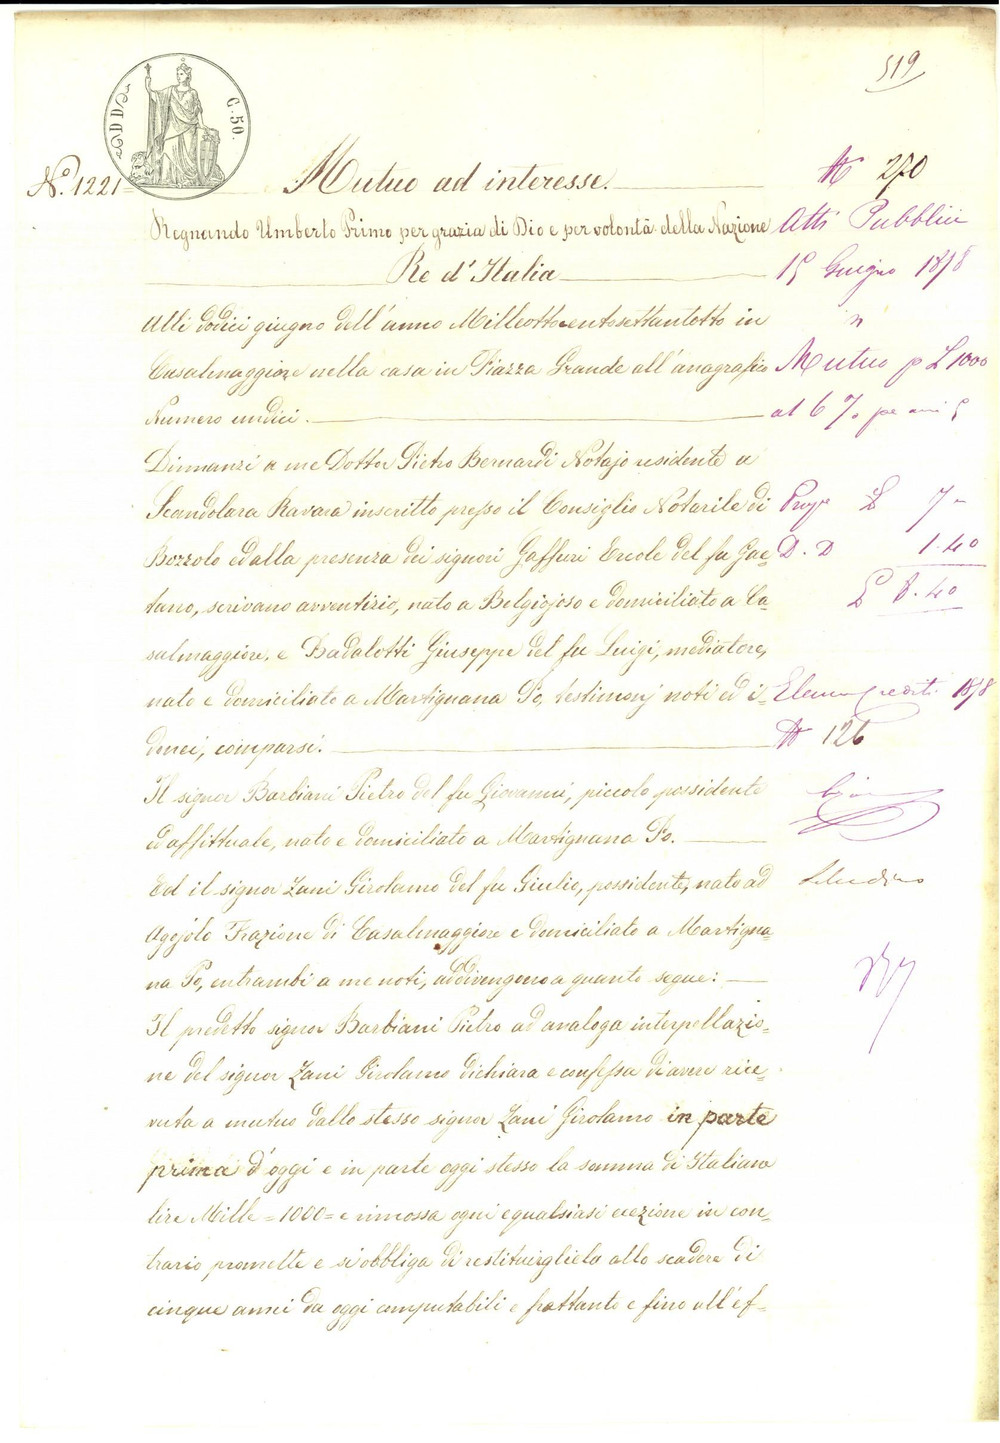 519
C. 50.
N.º 1221
Mutuo ad interesse.
Regnando Umberto Primo per grazia di Dio e per volontà della Nazione
Re d'Italia
Alli dodici giugno dell'anno Milleottocentosettantotto in
Casalmaggiore nella casa in Piazza Grande all'anagrafico
Numero undici.
Dinnanzi a me Dottor Pietro Bernardi Notajo residente a
Scandolara Ravara inscritto presso il Consiglio Notarile di
Bozzolo ed alla presenza dei signori Gaffuri Ercole del fu Gae=
tano, scrivano avventizio, nato a Belgiojoso e domiciliato a Ca=
salmaggiore, e Badalotti Giuseppe del fu Luigi, mediatore,
nato e domiciliato a Martignana Po, testimonj noti ed i=
donei, comparsi.
Il signor Barbiani Pietro del fu Giovanni, piccolo possidente
ed affittuale, nato e domiciliato a Martignana Po.
Ed il signor Zani Girolamo del fu Giulio, possidente, nato ad
Agojolo Frazione di Casalmaggiore e domiciliato a Martigna=
na Po, entrambi a me noti, addivengono a quanto segue:
Il predetto signor Barbiani Pietro ad analoga interpellazio=
ne del signor Zani Girolamo dichiara e confessa di avere rice=
vuta a mutuo dallo stesso signor Zani Girolamo in parte
prima d'oggi e in parte oggi stesso la somma di Italiane
lire Mille =1000= e rimossa ogni e qualsiasi eccezione in con=
trario promette e si obbliga di restituirgliela allo scadere di
cinque anni da oggi computabili e frattanto e fino all'ef=
N 270
Atti Pubblici
15 Giugno 1878
Mutuo p £ 1000
al 6 %. per anni 5
Prop £ 7 -
D. D 1.40
£ 8.40
Crediti 1878
N 126